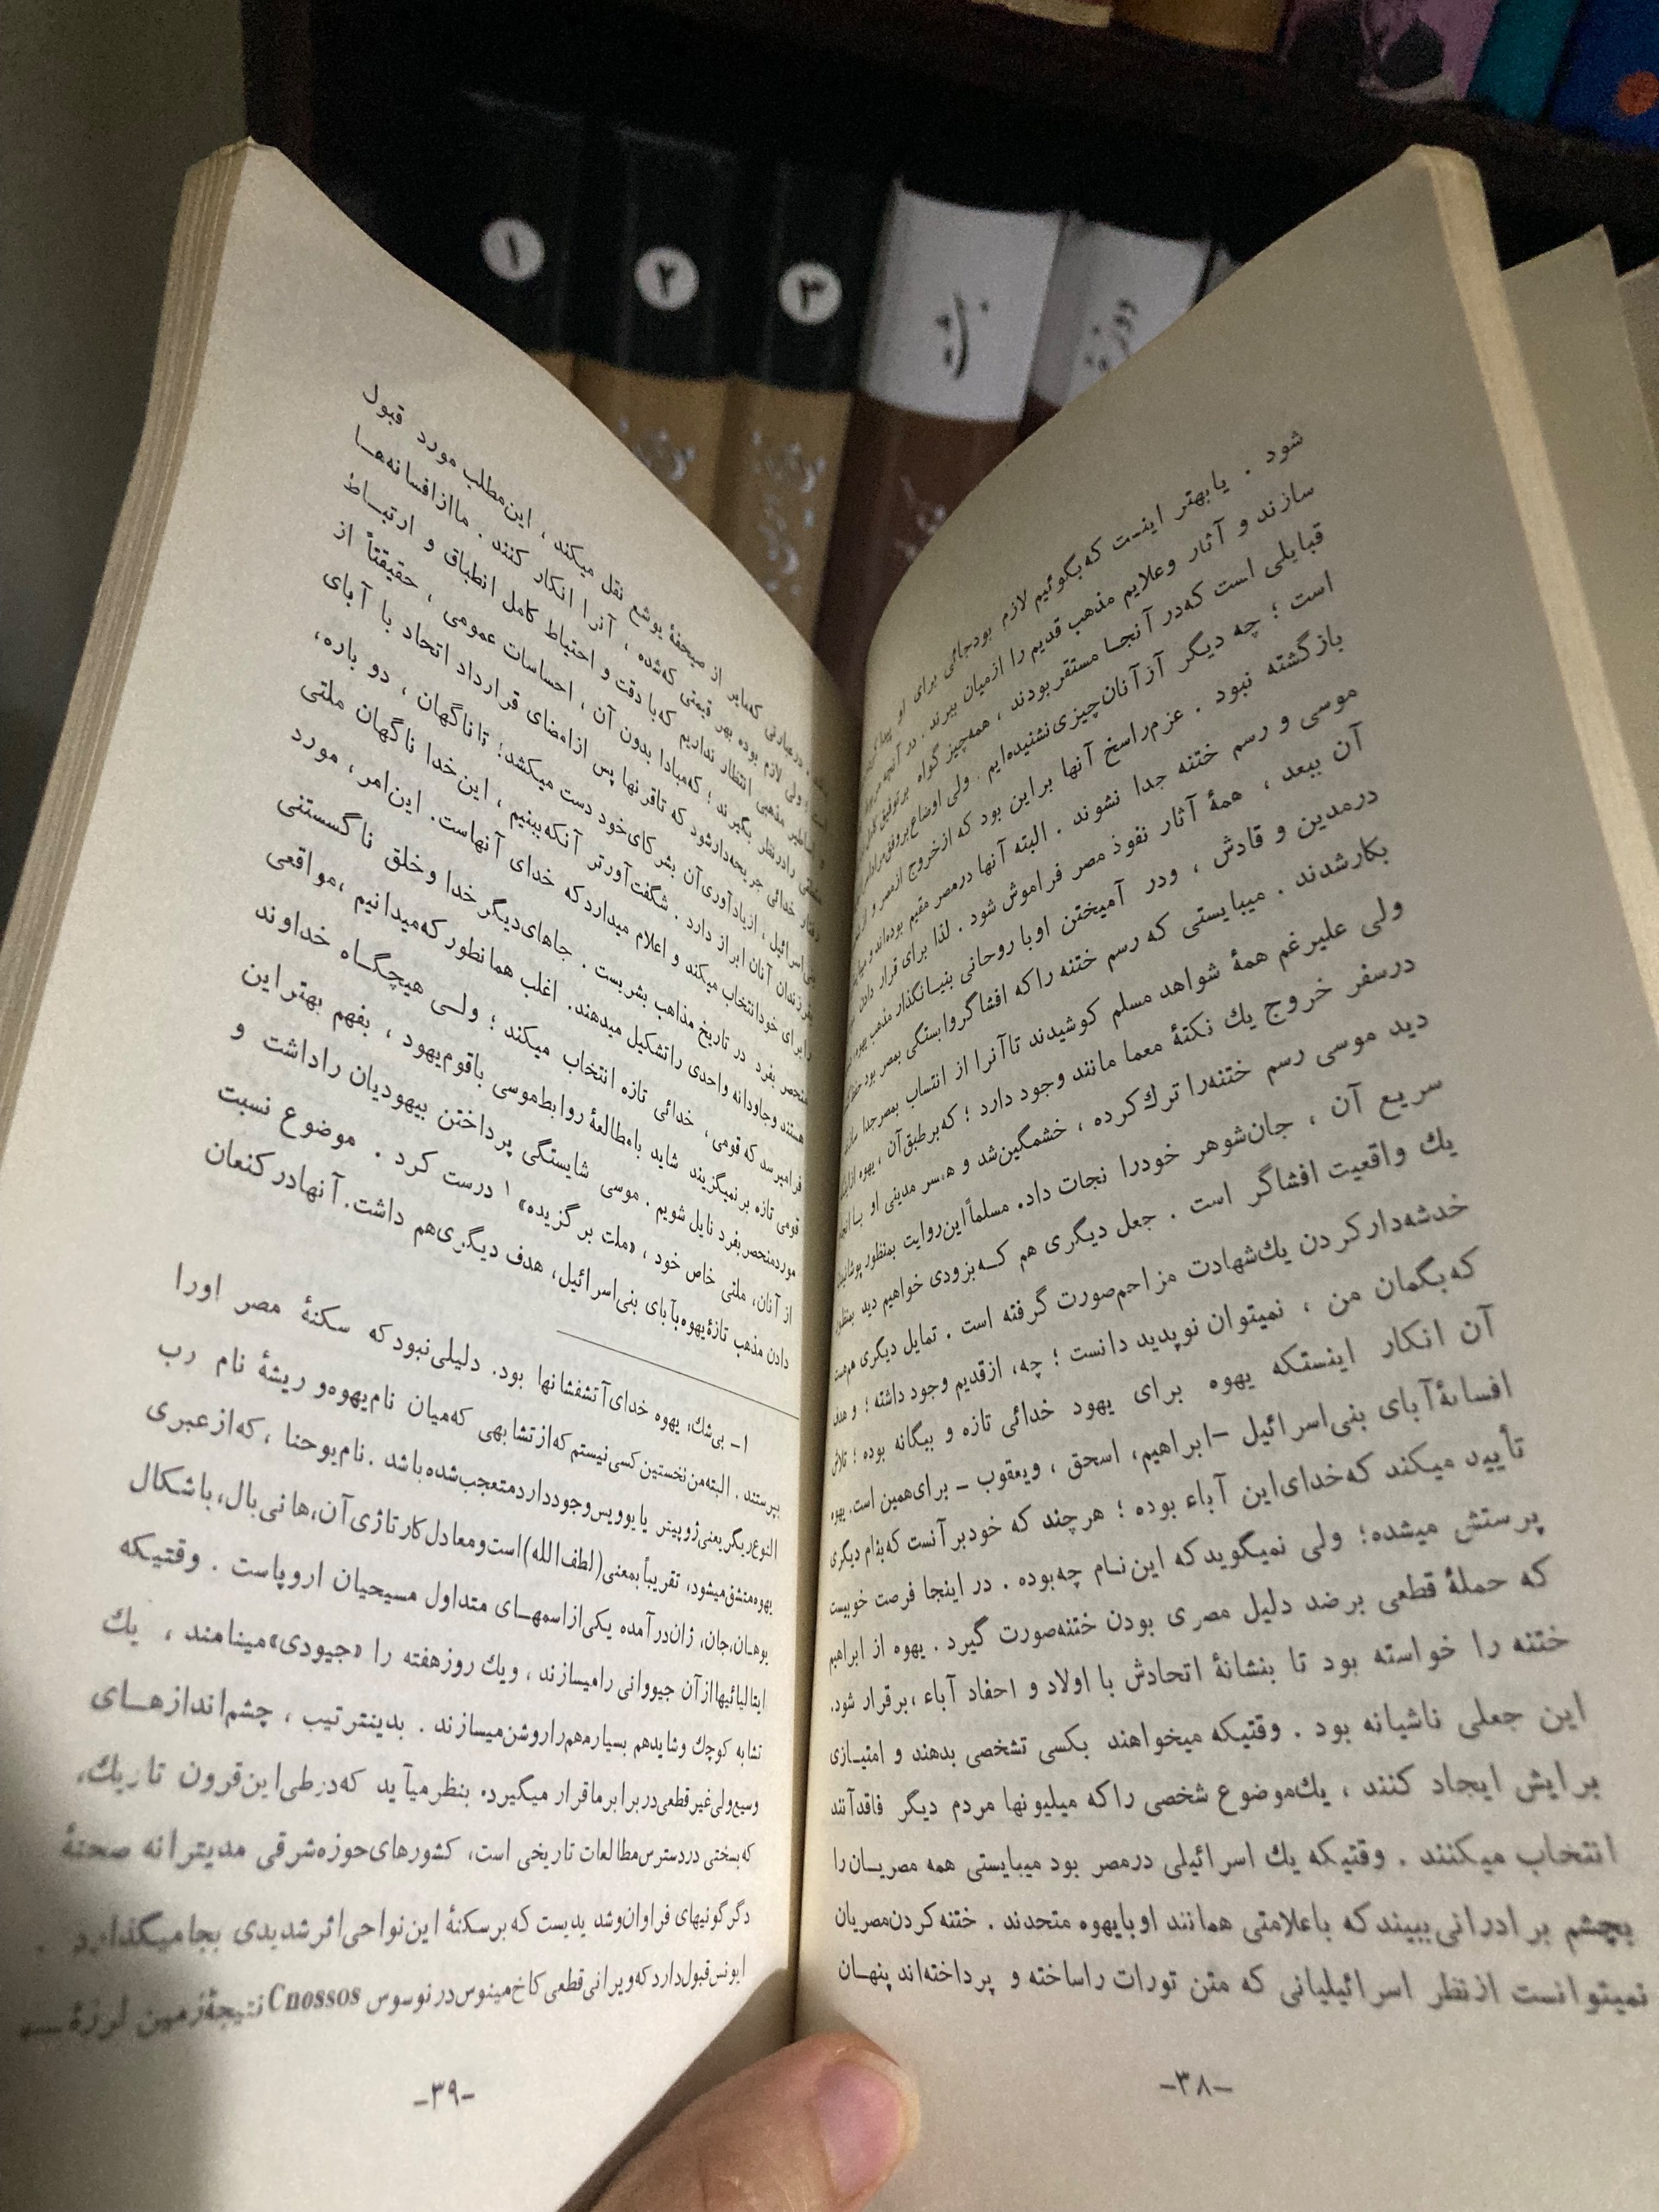 ۱
۲
۳
شود . یا بهتر اینست که بگوئیم لازم بود جائی برای او
سازند و آثار و علایم مذهب قدیم را از میان ببرند . در آنچه
قبایلی است که در آنجا مستقر بودند ، همه چیز گواه بر توفیق
است ؛ چه دیگر از آنان چیزی نشنیده‌ایم . ولی اوضاع بر وفق مراد
بازگشته نبود . عزم راسخ آنها بر این بود که از خروج از مصر و از
موسی و رسم ختنه جدا نشوند . البته آنها در مصر مقیم بوده‌اند و
آن ببعد ، همهٔ آثار نفوذ مصر فراموش شود . لذا برای قرار دادن
در مدین و قادش ، و در آمیختن او با روحانی بنیانگذار مذهب یهوه
بکار شدند . میبایستی که رسم ختنه را که افشاگر وابستگی بمصر بود
ولی علیرغم همهٔ شواهد مسلم کوشیدند تا آنرا از انتساب بمصر جدا سازند
در سفر خروج یك نکتهٔ معما مانند وجود دارد ؛ که بر طبق آن ، یهوه
دید موسی رسم ختنه را ترك کرده ، خشمگین شد و همسر مدینی او با
سریع آن ، جان شوهر خود را نجات داد. مسلماً این روایت بمنظور پوشانیدن
یك واقعیت افشاگر است . جعل دیگری هم که بزودی خواهیم دید بمنظور
خدشه‌دار کردن یك شهادت مزاحم صورت گرفته است . تمایل دیگری هم هست
که بگمان من ، نمیتوان نوپدید دانست ؛ چه، از قدیم وجود داشته ؛ و هدف
آن انکار اینستکه یهوه برای یهود خدائی تازه و بیگانه بوده ؛ تلاش
افسانهٔ آبای بنی اسرائیل – ابراهیم، اسحق ، و یعقوب – برای همین است. یهوه
تأیید میکند که خدای این آباء بوده ؛ هر چند که خود بر آنست که بنام دیگری
پرستش میشده؛ ولی نمیگوید که این نام چه بوده . در اینجا فرصت خوبیست
که حملهٔ قطعی بر ضد دلیل مصری بودن ختنه صورت گیرد . یهوه از ابراهیم
ختنه را خواسته بود تا بنشانهٔ اتحادش با اولاد و احفاد آباء ، برقرار شود.
این جعلی ناشیانه بود . وقتیکه میخواهند بکسی تشخصی بدهند و امتیازی
برایش ایجاد کنند ، یك موضوع شخصی را که میلیونها مردم دیگر فاقد آنند
انتخاب میکنند . وقتیکه یك اسرائیلی در مصر بود میبایستی همه مصریان را
بچشم برادرانی ببیند که با علامتی همانند او با یهوه متحدند . ختنه کردن مصریان
نمیتوانست از نظر اسرائیلیانی که متن تورات را ساخته و پرداخته‌اند پنهان
–۳۸–
که بنابر از صیحفهٔ یوشع نقل میکند ، این مطلب مورد قبول
است ؛ ولی لازم بوده بهر قیمتی که شده ، آنرا انکار کنند . ما از افسانه‌ها
و اساطیر مذهبی انتظار نداریم که با دقت و احتیاط کامل انطباق و ارتباط
منطقی را در نظر بگیرند ؛ که مبادا بدون آن ، احساسات عمومی ، حقیقتاً از
رفتار خدائی جریحه‌دار شود که تا قرنها پس از امضای قرارداد اتحاد با آبای
بنی اسرائیل ، از یادآوری آن بشرکای خود دست میکشد؛ تا ناگهان ، دو باره،
فرزندان آنان ابراز دارد . شگفت‌آورتر آنکه ببینیم ، این خدا ناگهان ملتی
را برای خود انتخاب میکند و اعلام میدارد که خدای آنهاست. این امر، مورد
منحصر بفرد در تاریخ مذاهب بشریست . جاهای دیگر خدا و خلق ناگسستنی
هستند و جاودانه واحدی را تشکیل میدهند. اغلب همانطور که میدانیم ، مواقعی
فرا میرسد که قومی ، خدائی تازه انتخاب میکند ؛ ولی هیچگاه خداوند
قومی تازه بر نمیگزیند شاید با مطالعهٔ روابط موسی با قوم یهود ، بفهم بهتر این
مورد منحصر بفرد نایل شویم . موسی شایستگی پرداختن بیهودیان را داشت و
از آنان، ملتی خاص خود ، «ملت برگزیده» ۱ درست کرد . موضوع نسبت
دادن مذهب تازهٔ یهوه بآبای بنی اسرائیل، هدف دیگری هم داشت. آنها در کنعان
۱– بی‌شك، یهوه خدای آتشفشانها بود. دلیلی نبود که سکنهٔ مصر او را
بپرستند . البته من نخستین کسی نیستم که از تشابهی که میان نام یهوه و ریشهٔ نام رب
النوع دیگر یعنی ژوپیتر یا یوویس وجود دارد متعجب شده باشد . نام یوحنا ، که از عبری
یهوه منشق میشود، تقریباً بمعنی (لطف الله) است و معادل کارتاژی آن، هانی بال، باشکال
یوهان، جان، ژان در آمده یکی از اسمهای متداول مسیحیان اروپاست . وقتیکه
ایتالیائیها از آن جیووانی را میسازند ، و یك روز هفته را «جیودی» مینامند ، یك
تشابه کوچك و شاید هم بسیار مهم را روشن میسازند . بدینترتیب ، چشم اندازهای
وسیع ولی غیر قطعی در برابر ما قرار میگیرد. بنظر میآید که در طی این قرون تاریك،
که بسختی در دسترس مطالعات تاریخی است، کشورهای حوزه شرقی مدیترانه صحنهٔ
دگرگونیهای فراوان و شدیدیست که بر سکنهٔ این نواحی اثر شدیدی بجا میگذارد .
ایونس قبول دارد که ویرانی قطعی کاخ مینوس در نوسوس Cnossos نتیجهٔ زمین لرزهٔ
–۳۹–